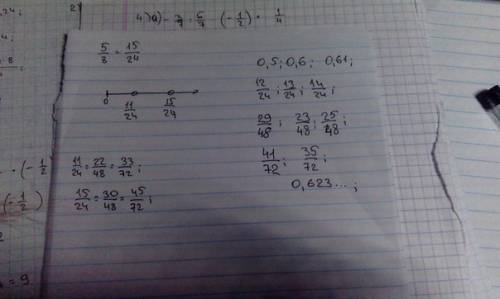 2)
4)a) - 7/7 · 5/7 · (-1/2) · 1/4
5/8 = 15/24
0 11/24 15/24
11/24 = 22/48 = 33/72;
15/24 = 30/48 = 45/72;
0,5; 0,6; 0,61;
12/24; 13/24; 14/24;
29/48; 23/48; 25/48;
41/72; 35/72;
0,623...;
(-1/2)
(-1/2)
= 9